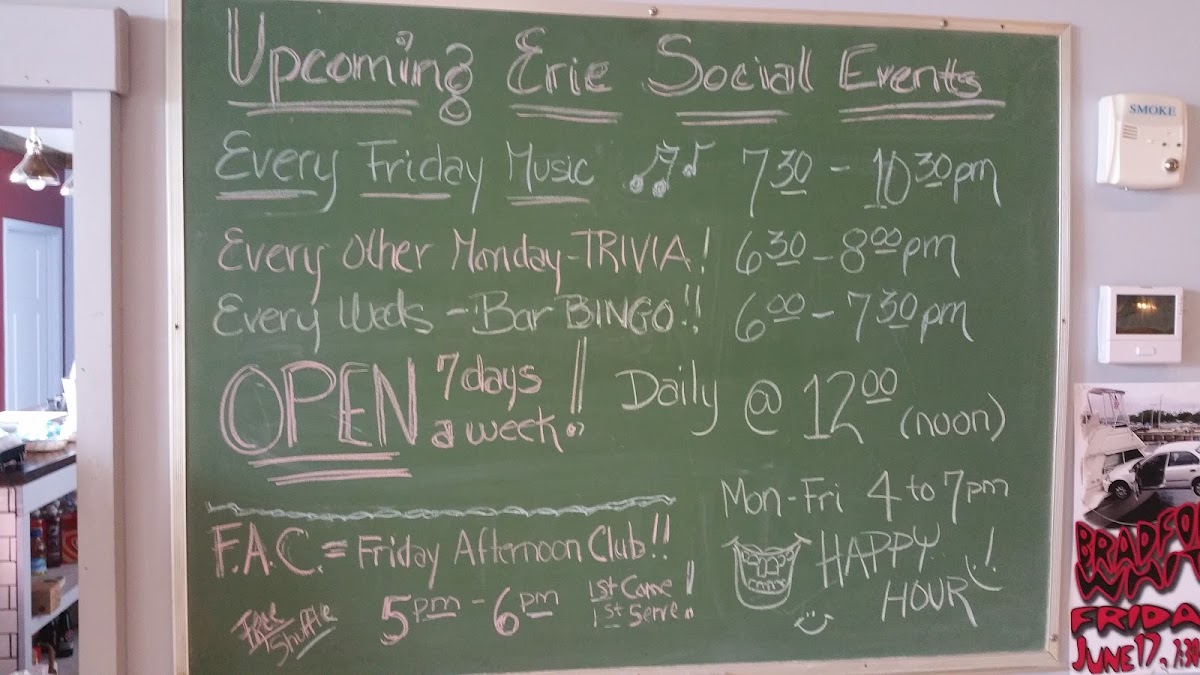 Upcoming Erie Social Events
Every Friday Music 7 30 - 10 30 pm
Every Other Monday - TRIVIA! 6 30 - 8 00 pm
Every Weds - Bar BINGO!! 6 00 - 7 30 pm
OPEN 7 days a week!! Daily @ 12 00 (noon)
Mon-Fri 4 to 7 pm
HAPPY HOUR!!
F.A.C. = Friday Afternoon Club!!
Free Shuffle 5 pm - 6 pm 1st Come 1st Serve!
SMOKE
FRIDA
JUNE 17, 7:30